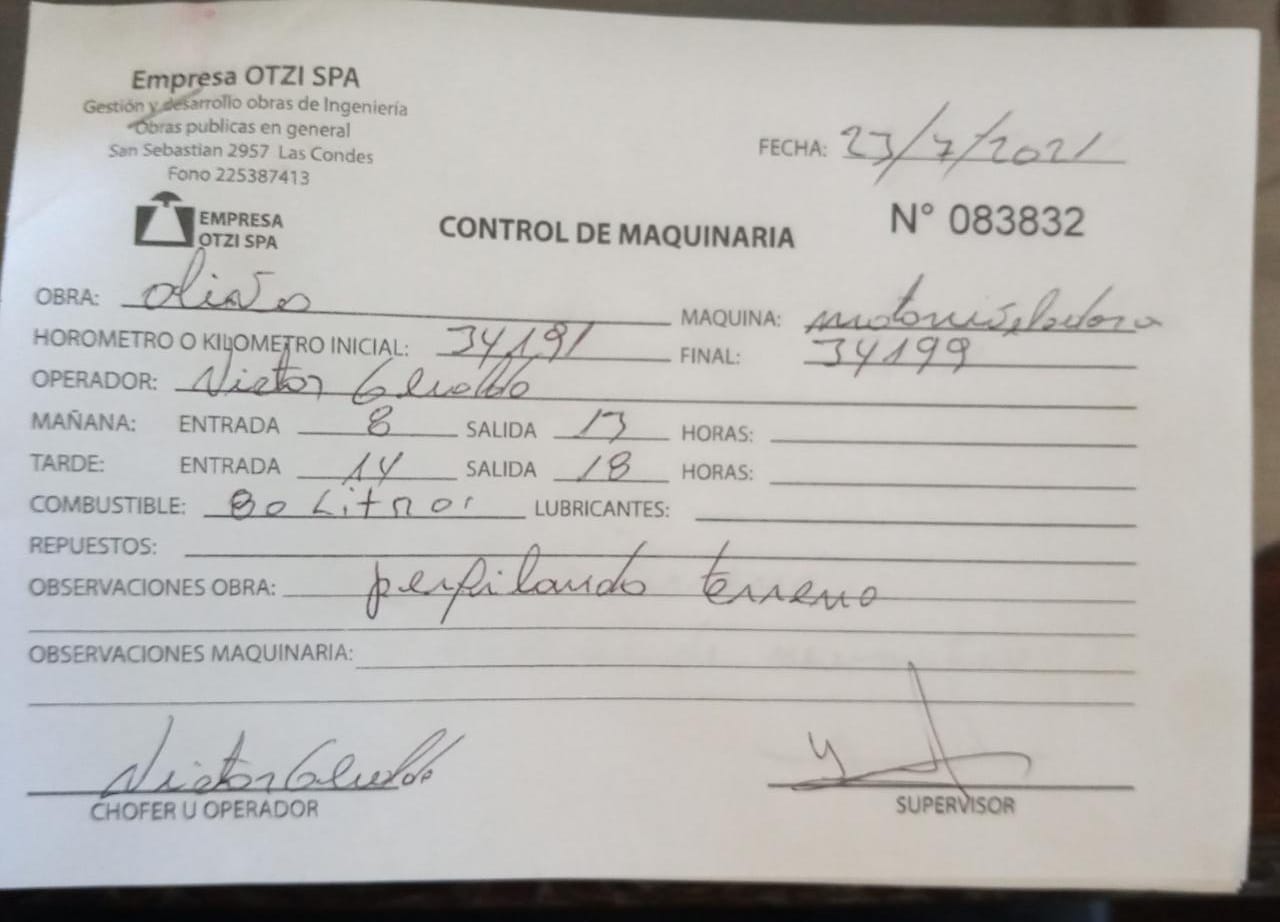 Empresa OTZI SPA
Gestión y desarrollo obras de Ingeniería
Obras publicas en general
San Sebastian 2957 Las Condes
Fono 225387413
FECHA: 23/7/2021
EMPRESA
OTZI SPA
CONTROL DE MAQUINARIA
N° 083832
OBRA:
MAQUINA: motoniveladora
HOROMETRO O KILOMETRO INICIAL: 34191 FINAL: 34199
OPERADOR: Victor
MAÑANA: ENTRADA 8 SALIDA 13 HORAS:
TARDE: ENTRADA 14 SALIDA 18 HORAS:
COMBUSTIBLE: 80 Litros LUBRICANTES:
REPUESTOS:
OBSERVACIONES OBRA: perfilando terreno
OBSERVACIONES MAQUINARIA:
Victor
CHOFER U OPERADOR
SUPERVISOR